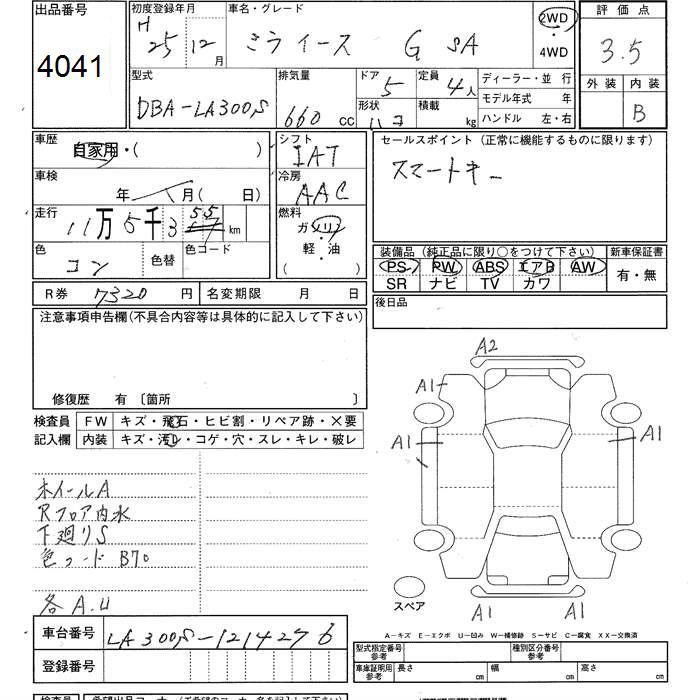 出品番号
4041
初度登録年月
H 25年 12月
車名・グレード
ミライース G SA
2WD
・
4WD
評価点
3.5
外装 内装
B
型式
DBA-LA300S
排気量
660 cc
ドア
5
形状
ハコ
定員
4人
積載
kg
ディーラー・並行
モデル年式 年
ハンドル 左・右
車歴
自家用・( )
シフト
IAT
セールスポイント (正常に機能するものに限ります)
スマートキー
車検
年 月( 日)
冷房
AAC
走行
11万5千3 55 km
燃料
ガソリン
・
軽・油
( )
色
コン
色替
色コード
装備品 (純正品に限り○をつけて下さい)
新車保証書
PS PW ABS エアB AW
SR ナビ TV カワ
有・無
R券 7320円
名変期限 月 日
後日品
注意事項申告欄(不具合内容等は具体的に記入して下さい)
修復歴 有〔箇所 〕
検査員
記入欄
FW キズ・飛石・ヒビ割・リペア跡・×要
内装 キズ・汚レ・コゲ・穴・スレ・キレ・破レ
ホイールA
Rフロア内水
下廻りS
色コード B70
各A.U
A2
A1
A1
A1
A1
A1
スペア
A−キズ E−エクボ U−凹み W−補修跡 S−サビ C−腐食 XX−交換済
車台番号
LA300S-1214276
登録番号
型式指定番号
参考
種別区分番号
参考
車庫証明用
参考
長さ cm
幅 cm
高さ cm
検査員